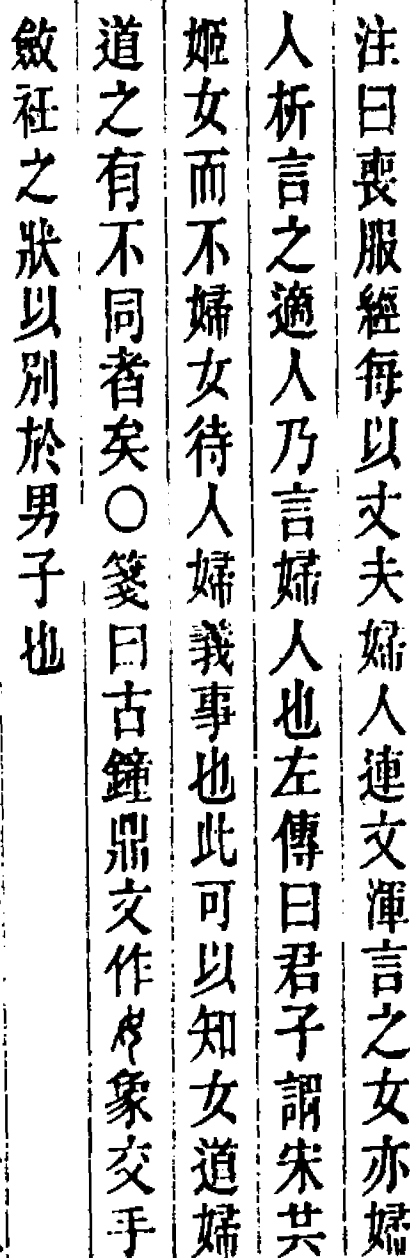 注曰喪服經每以丈夫婦人連文渾言之女亦婦
人析言之適人乃言婦人也左傳曰君子謂宋共
姬女而不婦女待人婦義事也此可以知女道婦
道之有不同者矣○箋曰古鐘鼎文作象交手
斂衽之狀以別於男子也